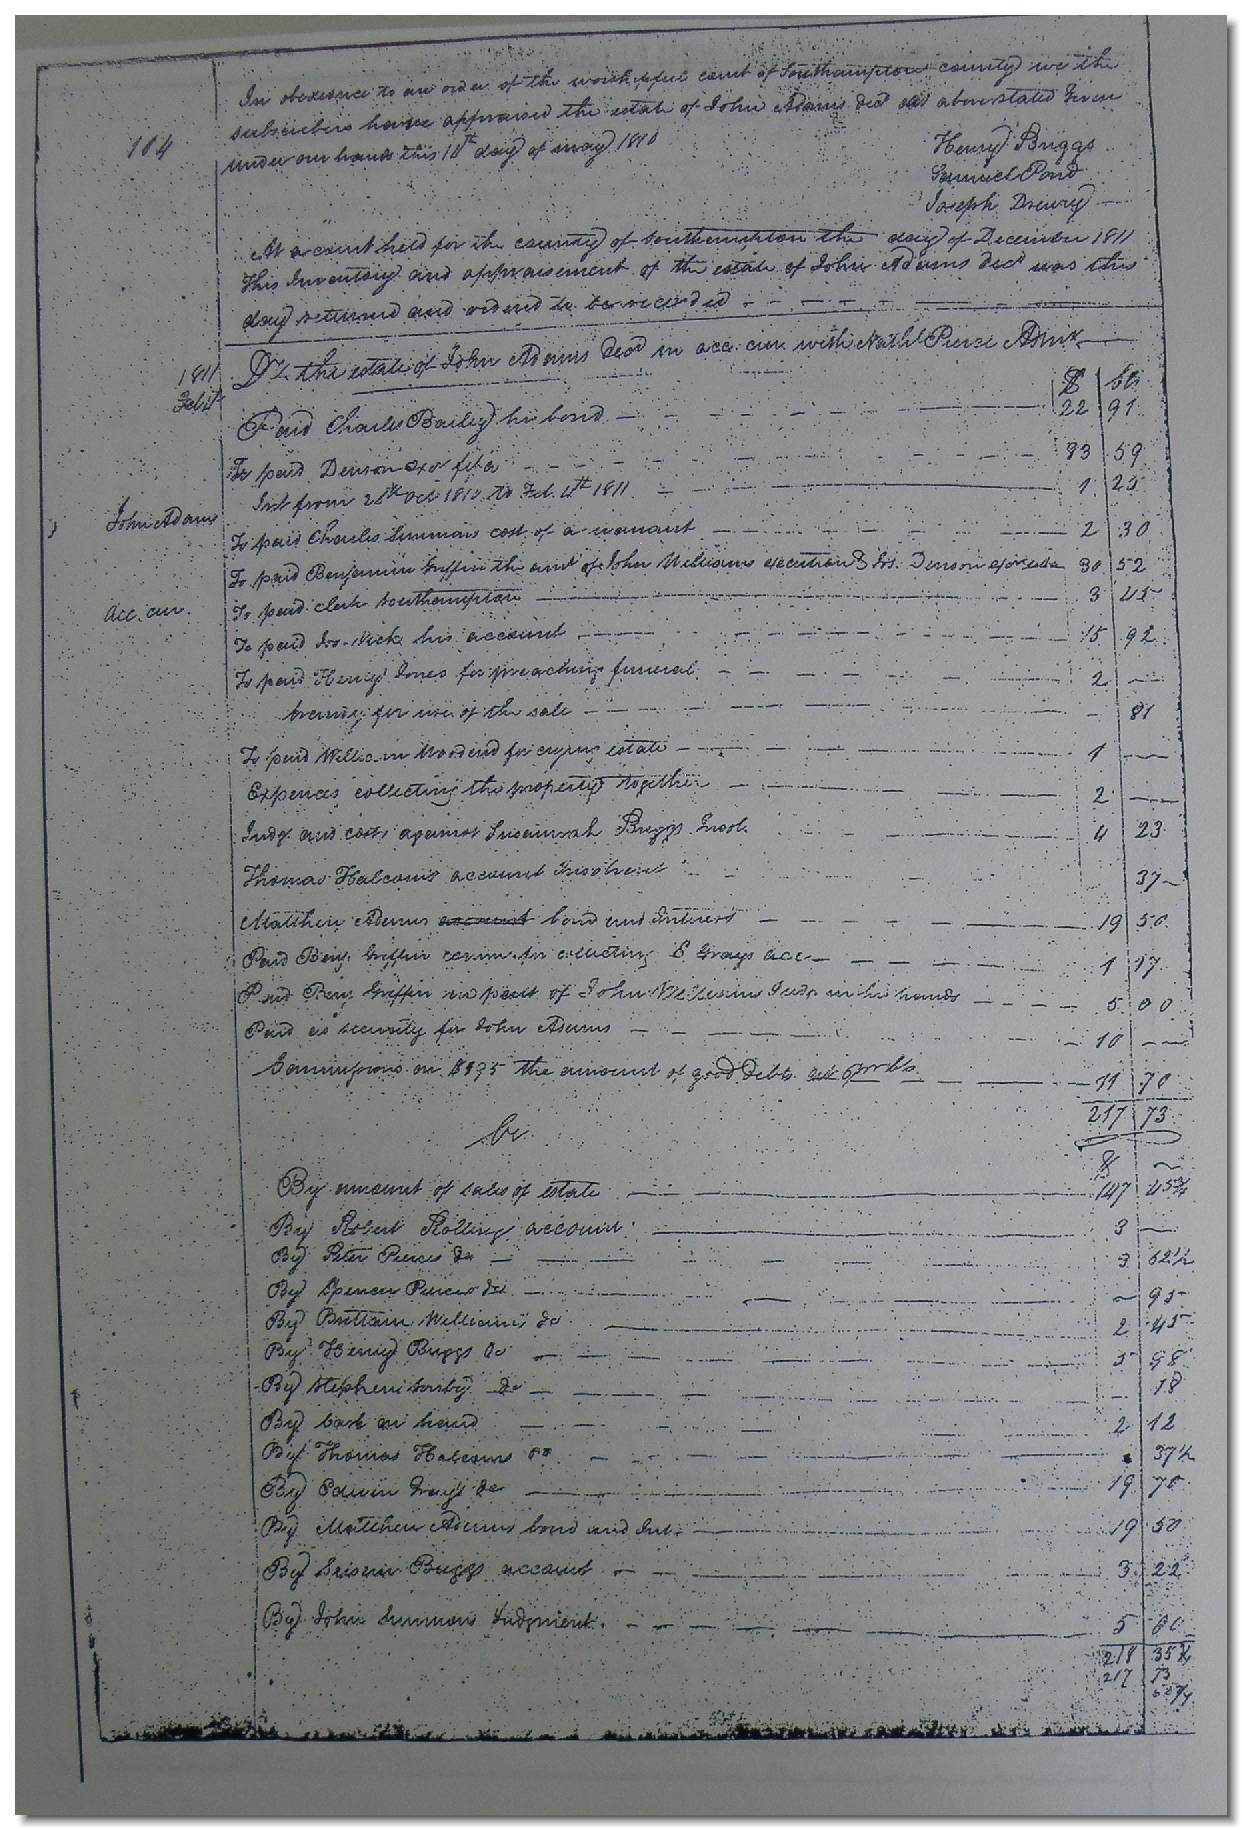 In obedience to an order of the worshipful court of Southampton county we the
104
subscribers have appraised the estate of John Adams decd as above stated Given
under our hands this 10th day of may 1810
Henry Briggs
Samuel Pond
Joseph Drewry
At a court held for the county of Southampton the day of December 1811
This Inventory and appraisement of the estate of John Adams decd was this
day returned and ordered to be recorded
1811
Feb 4th
Dr. the estate of John Adams decd in acc. curr with Nathl Pierce Admr
$ Cts
Paid Charles Bailey his bond 22 91
To paid Denson exor fifa 83 59
Int from 28th Oct 1810 to Feb. 4th 1811 1. 25
John Adams
To paid Charles Simmons cost of a warrant 2 30
To paid Benjamin Griffin the amt of John Williams execution & Jos. Denson 30 52
acc. curr.
To paid clerk Southampton 3 45
To paid Jos. Vick his account 15 92
To paid Henry Jones for preaching funeral 2
brandy for use of the sale 81
To paid William Woodend for crying estate 1
Expences collecting the property together 2
Judgt and costs against Susannah Briggs Insol. 4 23
Thomas Halcoms account Insolvent 37
Matthew Adams account bond and Interest 19 50
Paid Benj. Griffin comm. for collecting E Grays acc 1 17
Paid Benj Griffin in part of John Williams Judgt in his hands 5 00
Paid as security for John Adams 10
Commissions on $195 the amount of good debts at 6 pr ct 11 70
217 73
Cr
$
By amount of sales of estate 147 45¾
By Robert Rollings account 3
By Peter Pierce do 3 62½
By Spencer Pierces do 95
By Brittain Williams do 2 45
By Henry Briggs do 5 98
By Stephen do 18
By Cash on hand 2 12
By Thomas Halcoms do 37½
By Edwin Grays do 19 70
By Matthew Adams bond and Int. 19 50
By Susan Briggs account 3 22
By John Simmons Judgment 5 00
218 35¾
217 73
62¾